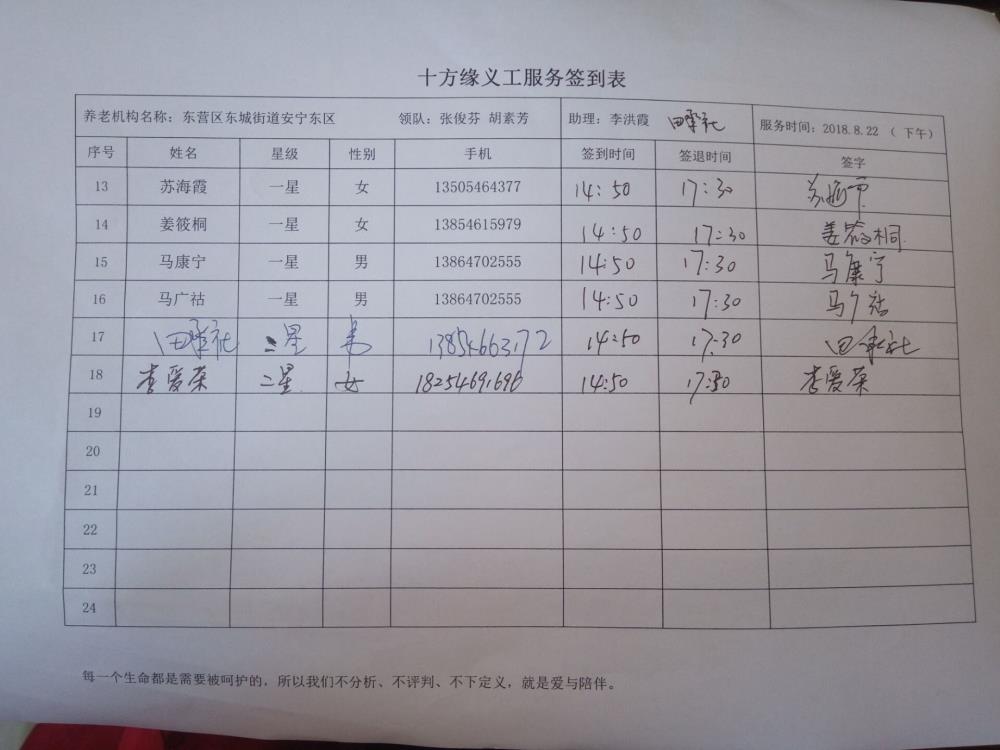 十方缘义工服务签到表
养老机构名称：东营区东城街道安宁东区 领队：张俊芬 胡素芳 助理：李洪霞 田承社 服务时间：2018.8.22 （ 下午）
序号 姓名 星级 性别 手机 签到时间 签退时间 签字
13 苏海霞 一星 女 13505464377 14:50 17:30 苏海霞
14 姜筱桐 一星 女 13854615979 14:50 17:30 姜筱桐
15 马康宁 一星 男 13864702555 14:50 17:30 马康宁
16 马广祜 一星 男 13864702555 14:50 17:30 马广祜
17 田承社 二星 男 13854663172 14:50 17:30 田承社
18 李爱荣 二星 女 18254691696 14:50 17:30 李爱荣
19
20
21
22
23
24
每一个生命都是需要被呵护的，所以我们不分析、不评判、不下定义，就是爱与陪伴。